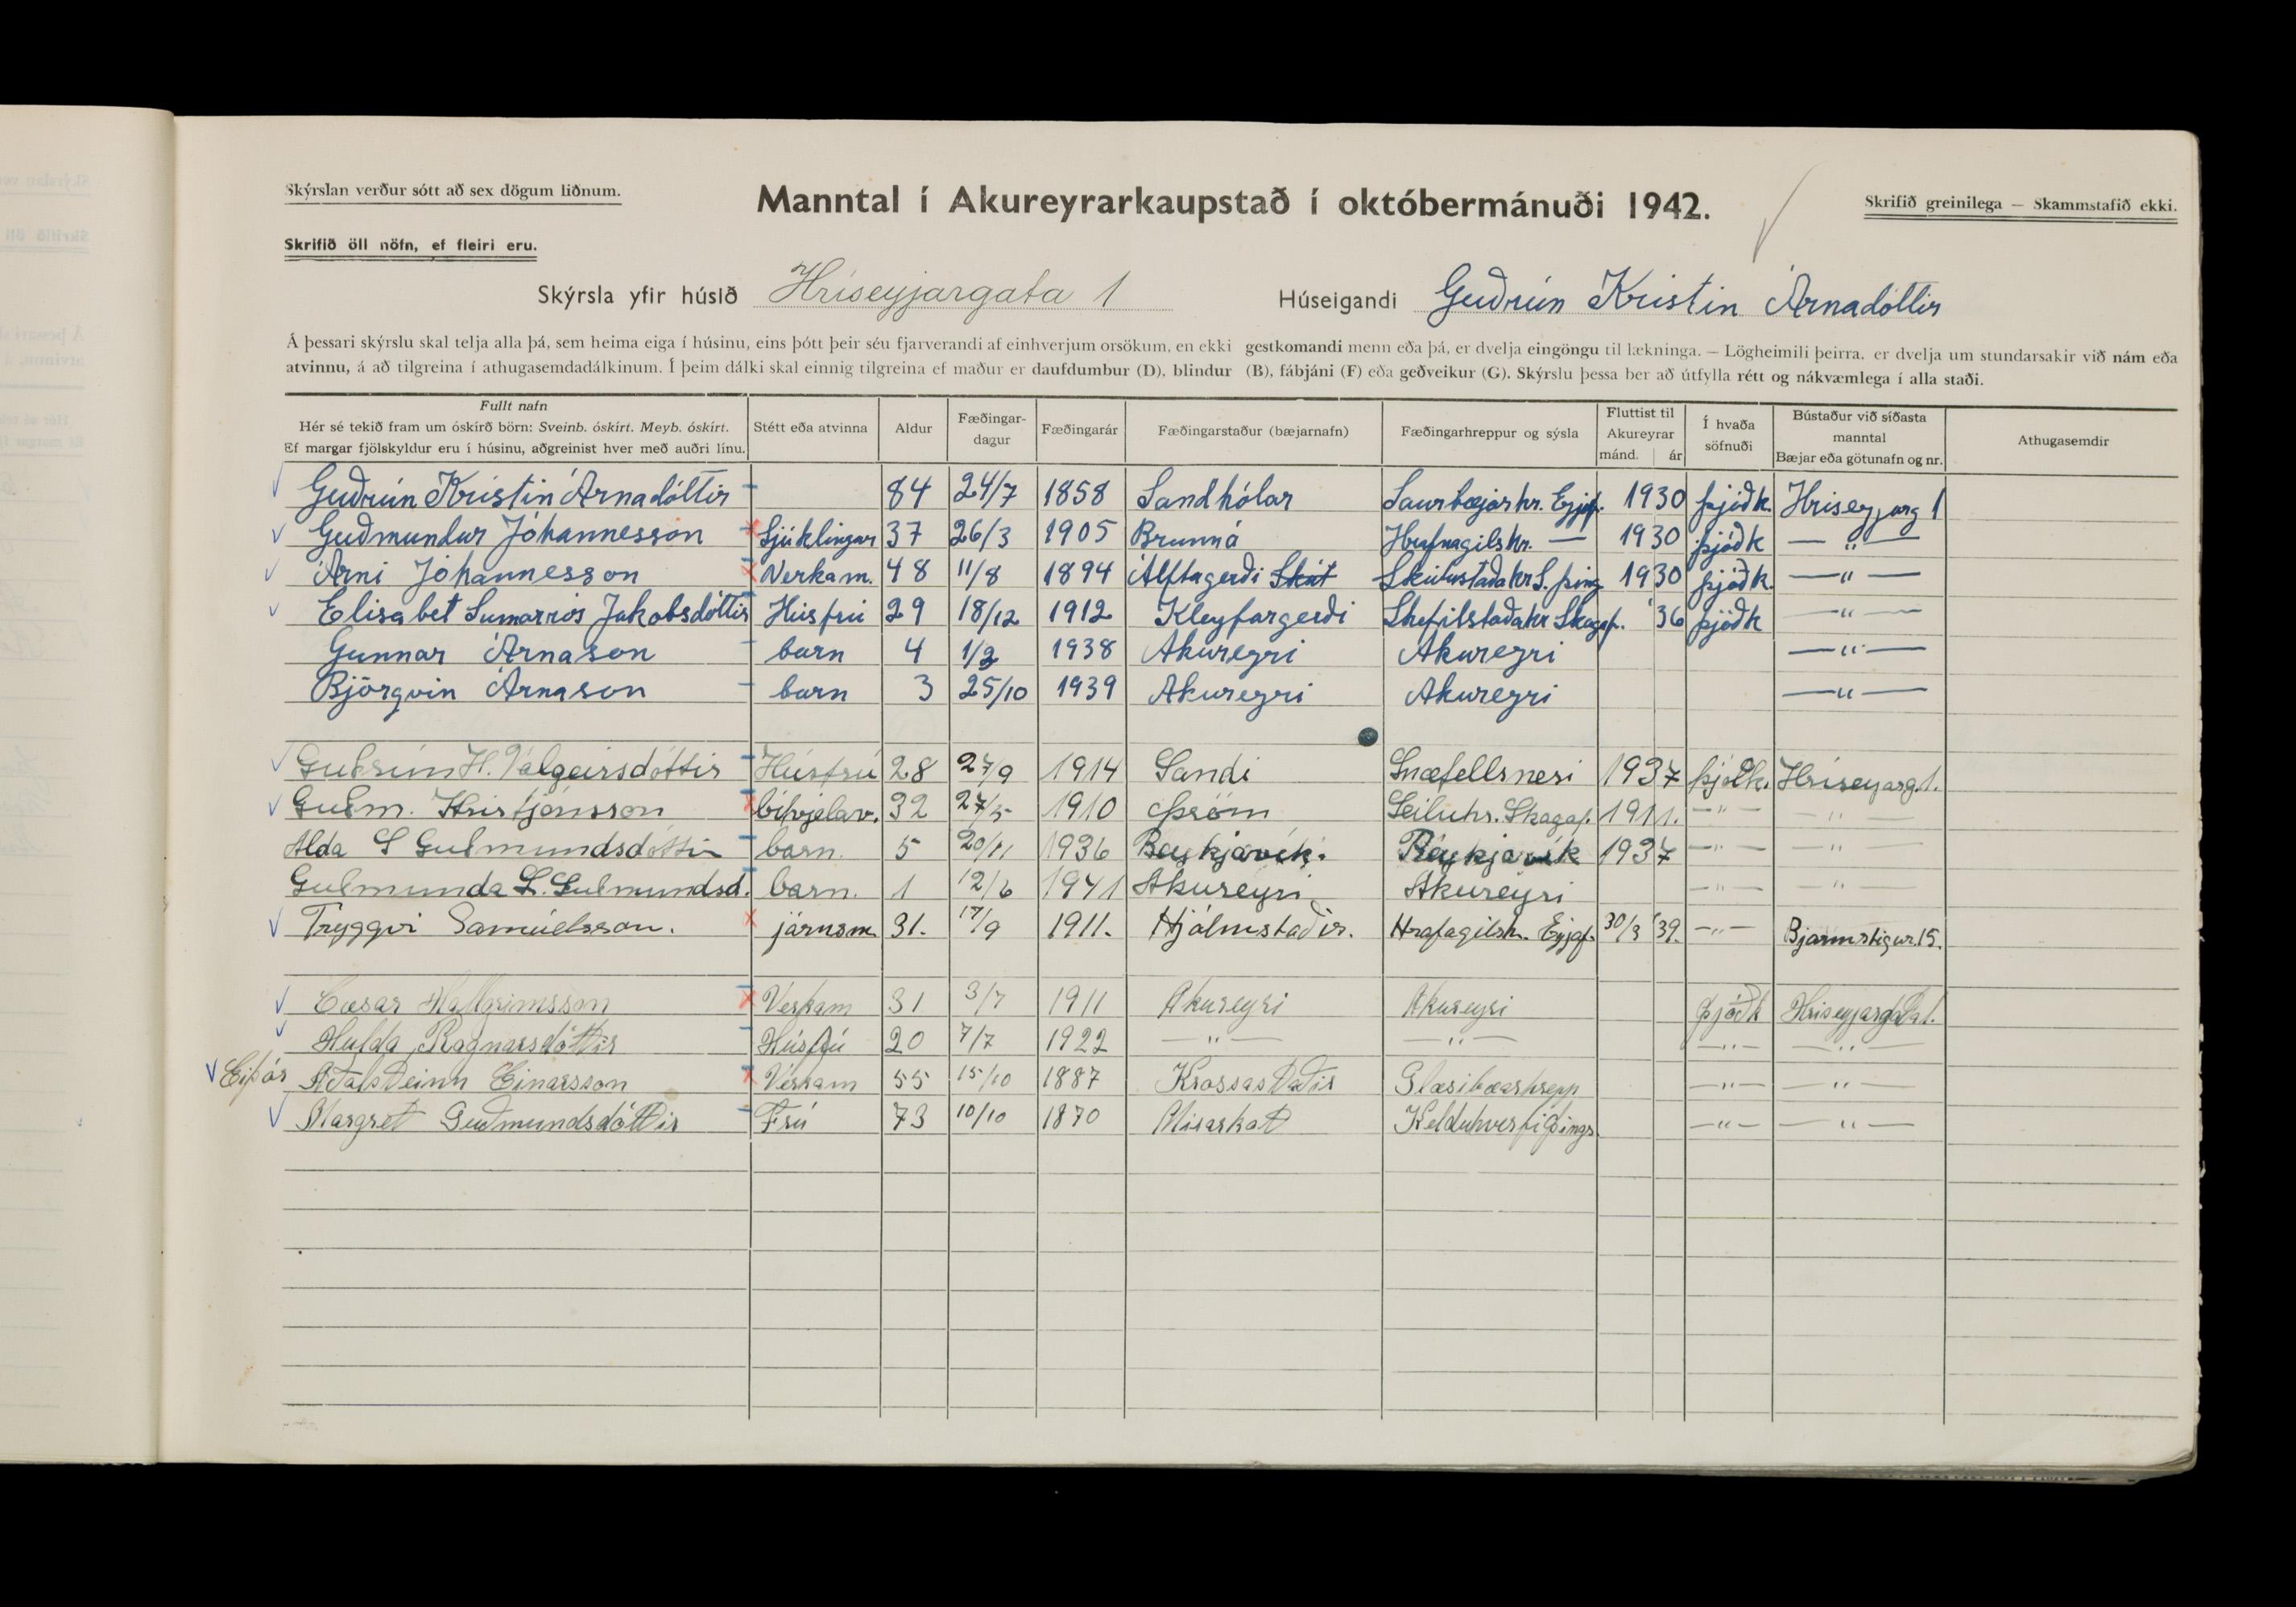 Skýrslan verður sótt að sex dögum liðnum.
Manntal í Akureyrarkaupstað í októbermánuði 1942.
Skrifið greinilega — Skammstafið ekki.
Skrifið öll nöfn, ef fleiri eru.
Skýrsla yfir húsið Hríseyjargata 1 Húseigandi Guðrún Kristín Árnadóttir
Á þessari skýrslu skal telja alla þá, sem heima eiga í húsinu, eins þótt þeir séu fjarverandi af einhverjum orsökum, en ekki gestkomandi menn eða þá, er dvelja eingöngu til lækninga. — Lögheimili þeirra, er dvelja um stundarsakir við nám eða
atvinnu, á að tilgreina í athugasemdadálkinum. Í þeim dálki skal einnig tilgreina ef maður er daufdumbur (D), blindur (B), fábjáni (F) eða geðveikur (G). Skýrslu þessa ber að útfylla rétt og nákvæmlega í alla staði.
Fullt nafn
Hér sé tekið fram um óskírð börn: Sveinb. óskírt. Meyb. óskírt.
Ef margar fjölskyldur eru í húsinu, aðgreinist hver með auðri línu.
Stétt eða atvinna
Aldur
Fæðingar-
dagur
Fæðingarár
Fæðingarstaður (bæjarnafn)
Fæðingarhreppur og sýsla
Fluttist til
Akureyrar
mánd. ár
Í hvaða
söfnuði
Bústaður við síðasta
manntal
Bæjar eða götunafn og nr.
Athugasemdir
Guðrún Kristín Árnadóttir 84 24/7 1858 Sandhólar Saurbæjarhr. Eyjaf. 1930 þjóðk. Hríseyjarg 1
Guðmundur Jóhannesson Sjúklingur 37 26/3 1905 Brunná Hrafnagilshr. — 1930 þjóðk — " —
Árni Jóhannesson Verkam. 48 11/8 1894 Álftagerði Skút Skútustaðahr S. þing 1930 þjóðk — " —
Elísabet Sumarrós Jakobsdóttir Húsfrú 29 18/12 1912 Kleyfargerði Skefilstaðahr Skagaf. '36 þjóðk — " —
Gunnar Árnason barn 4 1/2 1938 Akureyri Akureyri — " —
Björgvin Árnason barn 3 25/10 1939 Akureyri Akureyri — " —
Guðrún H. Valgeirsdóttir Húsfrú 28 27/9 1914 Sandi Snæfellsnesi 1937 þjóðk. Hríseyjarg. 1.
Guðm. Kristjánsson bifvjelav. 32 27/5 1910 Þröm Seiluhr. Skagaf. 1911. — " — — " —
Alda S Guðmundsdóttir barn. 5 20/11 1936 Reykjavík. Reykjavík 1937 — " — — " —
Guðmunda L. Guðmundsd. barn. 1 12/6 1941 Akureyri Akureyri — " — — " —
Tryggvi Samúelsson. járnsm. 31. 17/9 1911. Hjálmstaðir. Hrafagilsh. Eyjaf. 30/3 '39. — " — Bjarmstigur. 15.
Cæsar Hallgrímsson Verkam 31 3/7 1911 Akureyri Akureyri þjóðk Hríseyjargata 1.
Hulda Ragnarsdóttir Húsfrú 20 7/7 1922 — " — — " — — " — — " —
Eiþór Aðalsteinn Einarsson Verkam 55 15/10 1887 Krossastaðir Glæsibæarhrepp — " — — " —
Margret Guðmundsdóttir Frú 73 10/10 1870 Kelduhverfi Þings — " — — " —